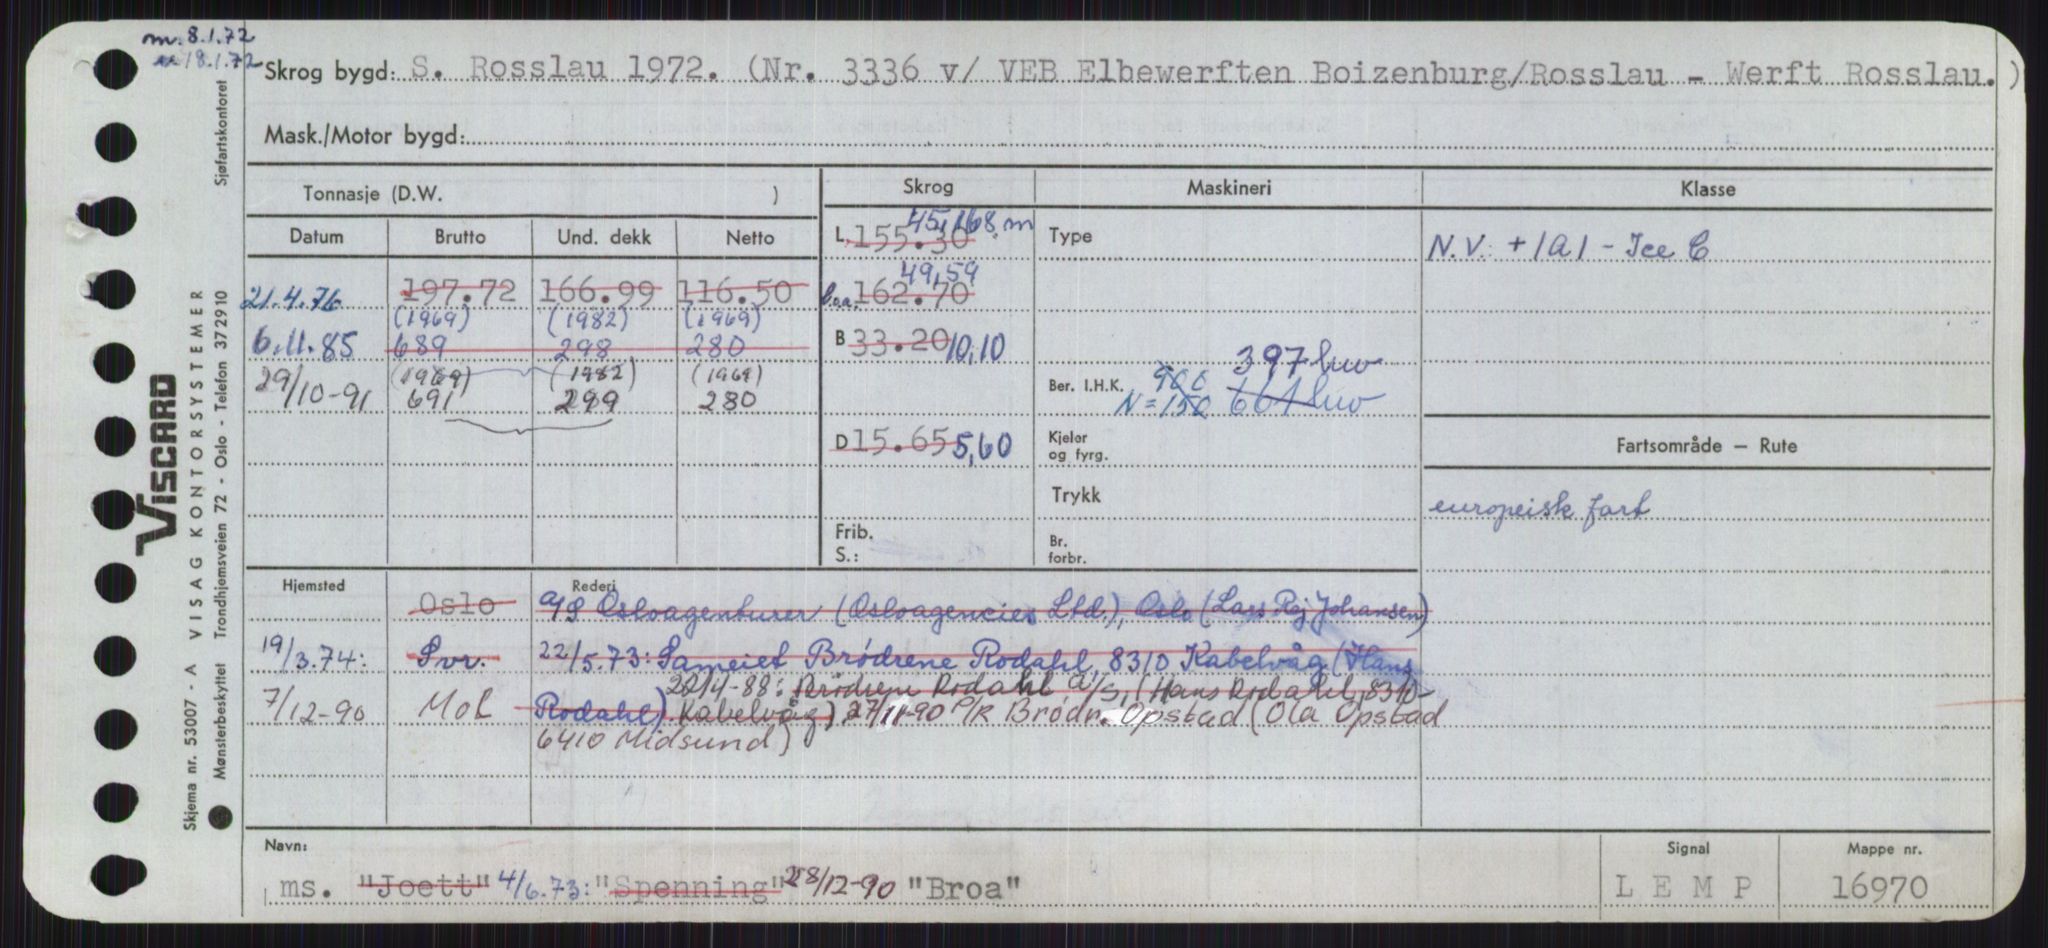 m. 8.1.72
m 18.1.72
Skrog bygd: S. Rosslau 1972. (Nr. 3336 v/ VEB Elbewerften Boizenburg/Rosslau - Werft Rosslau.)
Mask./Motor bygd:
Tonnasje (D.W. )
Skrog
Maskineri
Klasse
Datum Brutto Und. dekk Netto
L 155.30 45,168 m
Type
N.V. + 1A1 - Ice C
21.4.76 197.72 166.99 116.50
l.o.a. 162.70 49,59
(1969) (1982) (1969)
6.11.85 689 298 280
B 33.20 10,10
397 kw
29/10-91 (1969) (1982) (1969)
691 299 280
Ber. I.H.K. 900 661 kw
N = 150
D 15.65 5,60
Kjeler og fyrg.
Fartsområde — Rute
Trykk
europeisk fart
Frib.
S.:
Br. forbr.
Hjemsted
Rederi
Oslo A/S Osloagenturer (Osloagencies Ltd.), Oslo (Lars Rej Johansen)
19/3.74: Svr. 22/5.73: Sameiet Brødrene Rodahl, 8310 Kabelvåg (Hans
22/4-88: Brødrene Rodahl A/S, (Hans Rodahl, 8310
7/12-90 Mol Rodahl) Kabelvåg) 27/11-90 P/R Brødr. Opstad (Ola Opstad
6410 Midsund)
Navn:
Signal
Mappe nr.
ms. "Joett" 4/6.73: "Spenning" 28/12-90 "Broa"
LEMP
16970
VISCARD
VISAG KONTORSYSTEMER
Sjøfartskontoret
Skjema nr. 53007 - A
Mønsterbeskyttet Trondhjemsveien 72 - Oslo - Telefon 372910